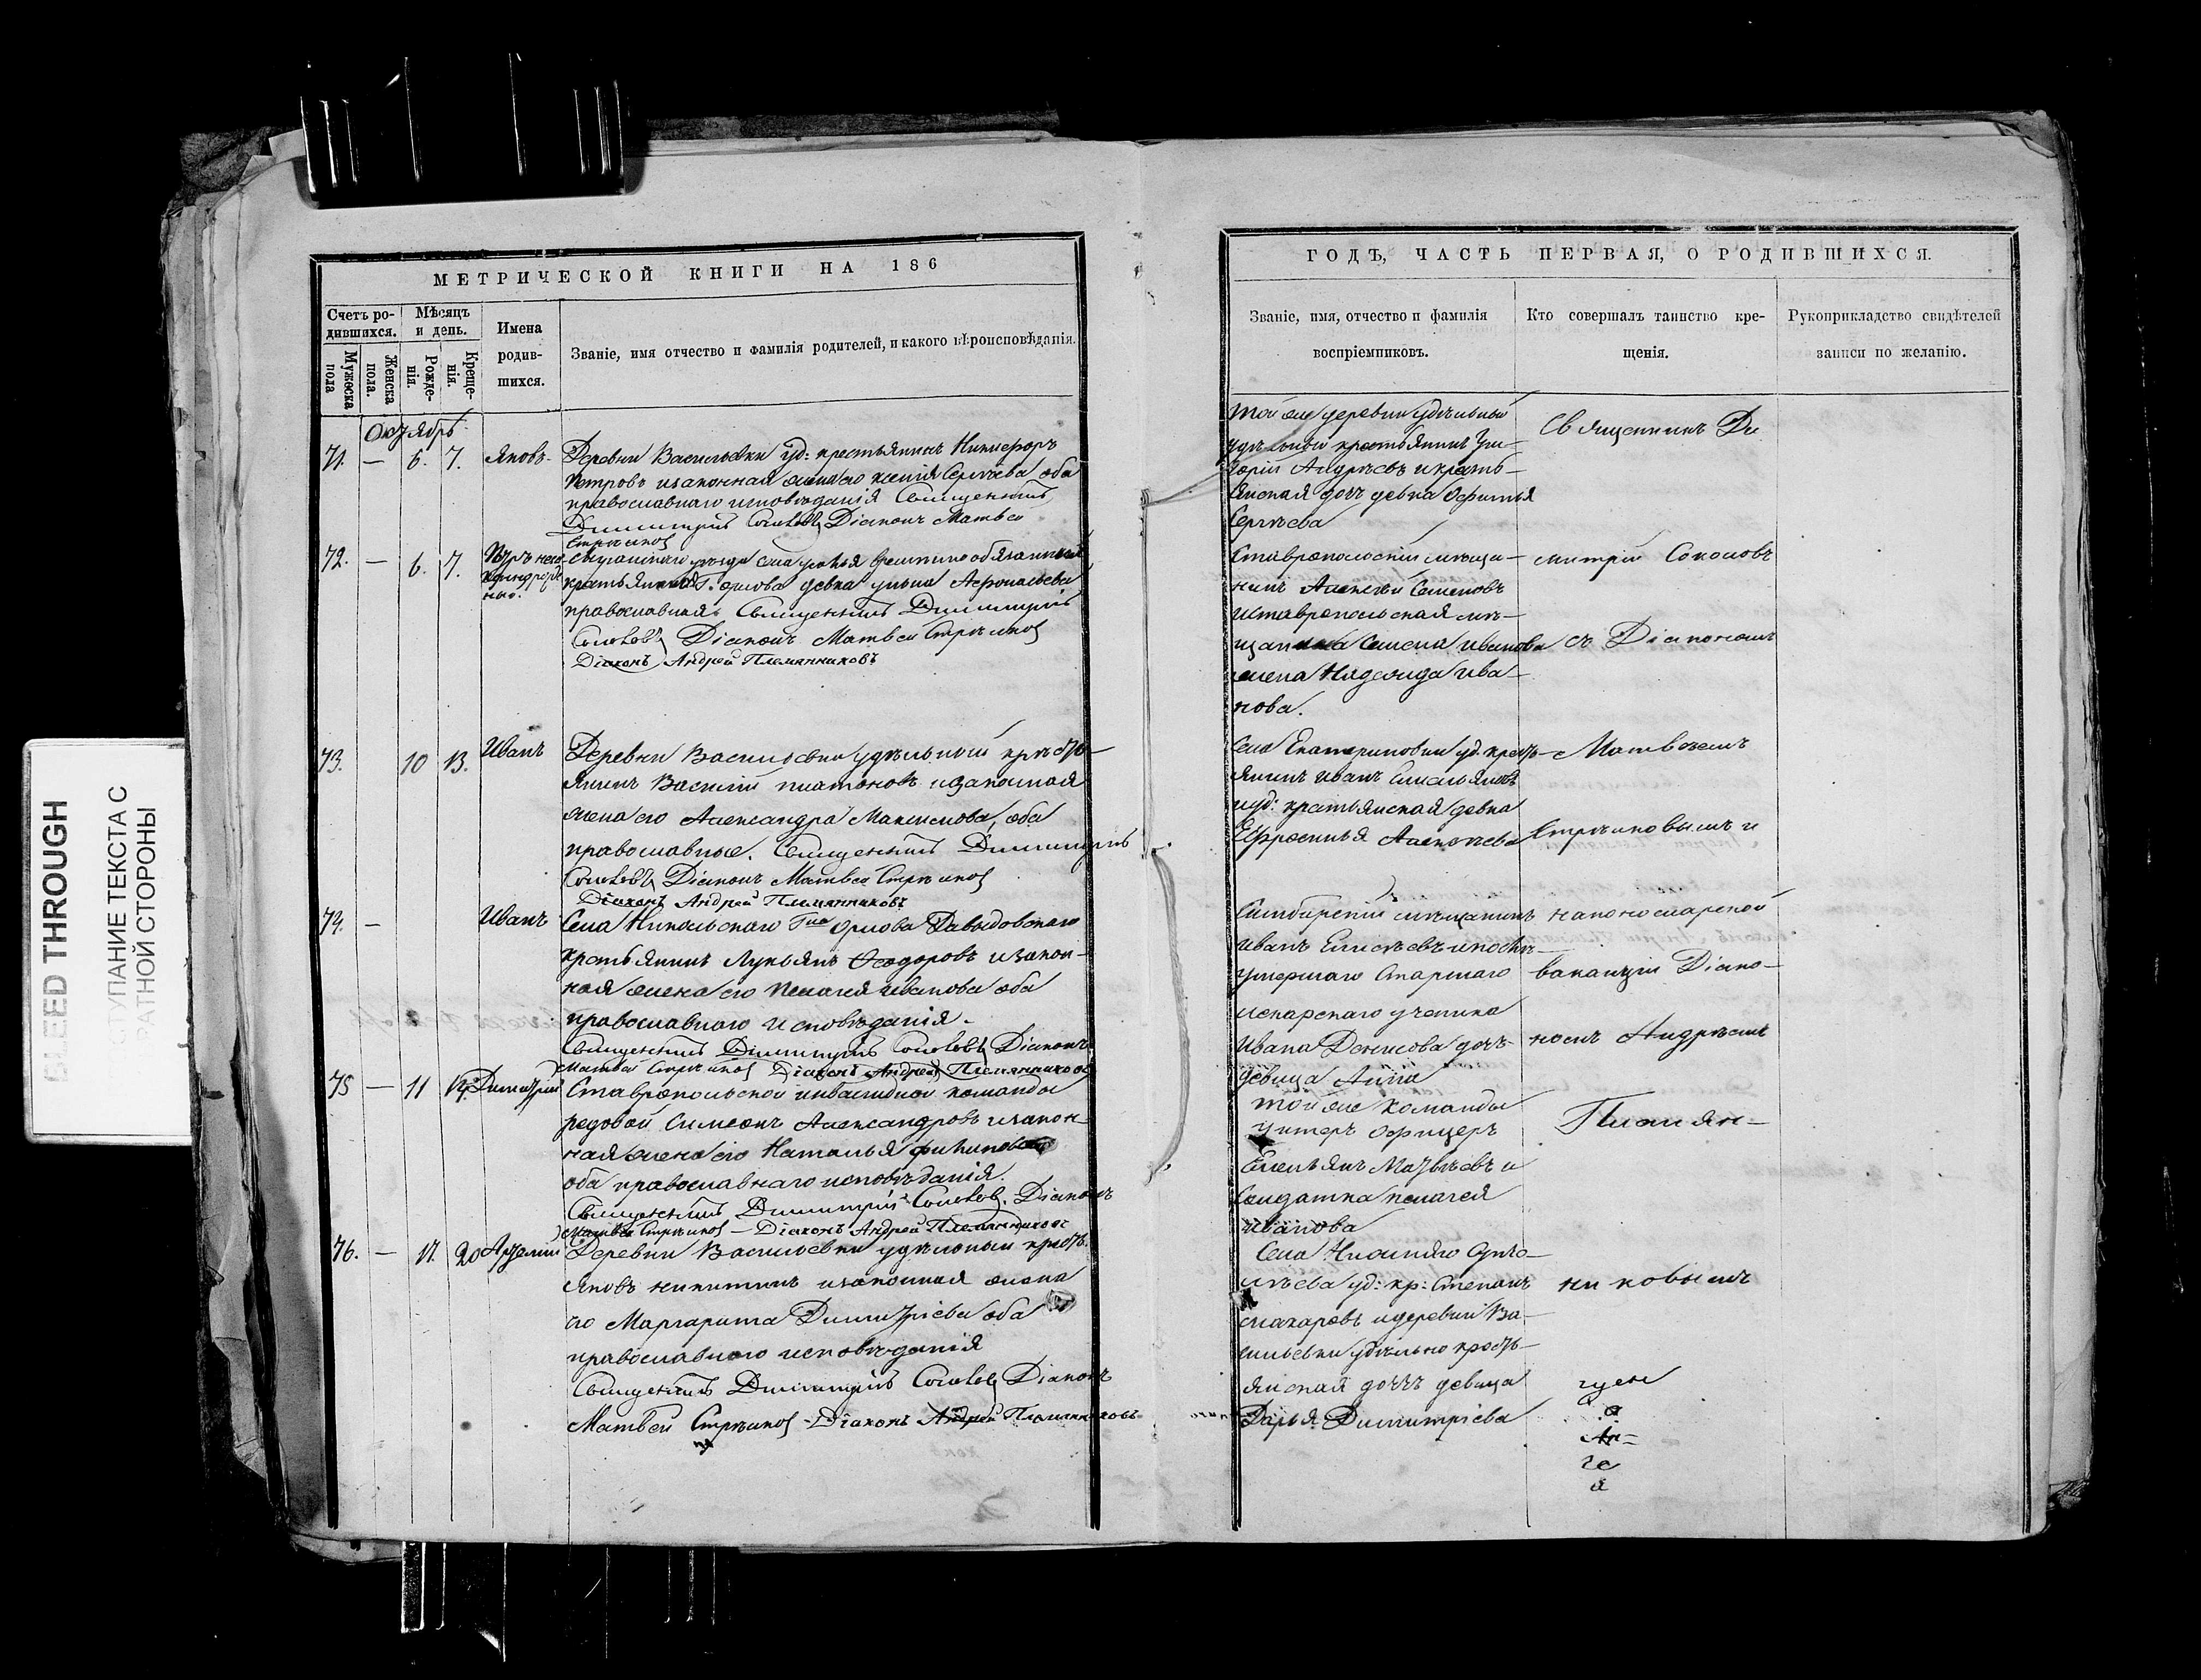 BLEED THROUGH
СТУПАНИЕ ТЕКСТА С
РАТНОЙ СТОРОНЫ
МЕТРИЧЕСКОЙ КНИГИ НА 186
Счетъ ро-
дившихся.
Мѣсяцъ
и день.
Мужеска
пола
Женска
пола.
Рожде-
нія.
Креще-
нія.
Имена
родив-
шихся.
Званіе, имя отчество и фамилія родителей, и какого вѣроисповѣданія.
Октябрь
71. — 6. 7. Яковъ. Деревни Васильевки уд: крестьянинъ Никифоръ
Петровъ и законная жена его Ксенія Сергѣева оба
православнаго исповѣданія Священникъ
Димитрій Соколовъ Діаконъ Матвей
Стрѣлковъ
72. — 6. 7. Петръ
временно обязанный
Г. Орлова девка Ульяна Афонасьева
православная. Священникъ Димитрій
Соколовъ Діаконъ Матвей Стрѣлковъ
Діаконъ Андрей Племянниковъ
73. 10 13. Иванъ Деревни Васильевки удѣльный кресть-
янинъ Василій Платоновъ и законная
жена его Александра Максимова, оба
православные. Священникъ Димитрій
Соколовъ Діаконъ Матвей Стрѣлковъ
Діаконъ Андрей Племянниковъ
74. — Иванъ Села Никольскаго Гна Орлова Давыдовскаго
крестьянинъ Лукьянъ Ѳеодоровъ и закон-
ная жена его Пелагея Иванова оба
православнаго исповѣданія.
Священникъ Димитрій Соколовъ Діаконъ
Матвей Стрѣлковъ Діаконъ Андрей Племянниковъ
75 — 11 14. Димитрій Ставропольской инвалидной команды
редовой Симеонъ Александровъ и закон-
ная жена его Наталья
оба православнаго исповѣданія.
Священникъ Димитрій Соколовъ. Діаконъ
Матвей Стрѣлковъ — Діаконъ Андрей Племянниковъ
76. — 17. 20 Артемій Деревни Васильевки удѣльный крест.
Яковъ Никитинъ и законная жена
его Маргарита Димитріева оба
православнаго исповѣданія
Священникъ Димитрій Соколовъ Діаконъ
Матвей Стрѣлковъ - Діаконъ Андрей Племянниковъ
ГОДЪ, ЧАСТЬ ПЕРВАЯ, О РОДИВШИХСЯ.
Званіе, имя, отчество и фамилія
воспріемниковъ.
Кто совершалъ таинство кре-
щенія.
Рукоприкладство свидѣтелей
записи по желанію.
Той же деревни удѣльный
крестьянинъ Гри-
горій Андрѣевъ и кресть-
янская дочь девка Офимья
Сергѣева
Священникъ Ди
Ставропольскій мѣща-
нинъ Алексѣй Семеновъ
и ставропольская мѣ-
щанина Семена Иванова
жена Надежда Ива-
нова.
митрій Соколовъ
съ Діакономъ
Села Екатериновки уд. кресть-
янинъ Иванъ Емельяновъ
и уд: крестьянская девка
Ефросинья Алексѣева
Матвеемъ
Стрѣлковымъ и
Симбирскій мѣщанинъ
Иванъ Елисѣевъ
умершаго Старшаго
лекарскаго ученика
Ивана Денисова дочь
девица Анна
на пономарской
ваканціи Діако-
номъ Андрѣемъ
Той же команды
унтеръ Офицеръ
Емельянъ и
Солдатка Пелагея
Иванова
Племян-
Села Нижняго
уд: кр: Степанъ
Макаровъ и деревни Ва-
сильевки удѣльно кресть-
янская дочь девица
Дарья Димитріева
никовымъ